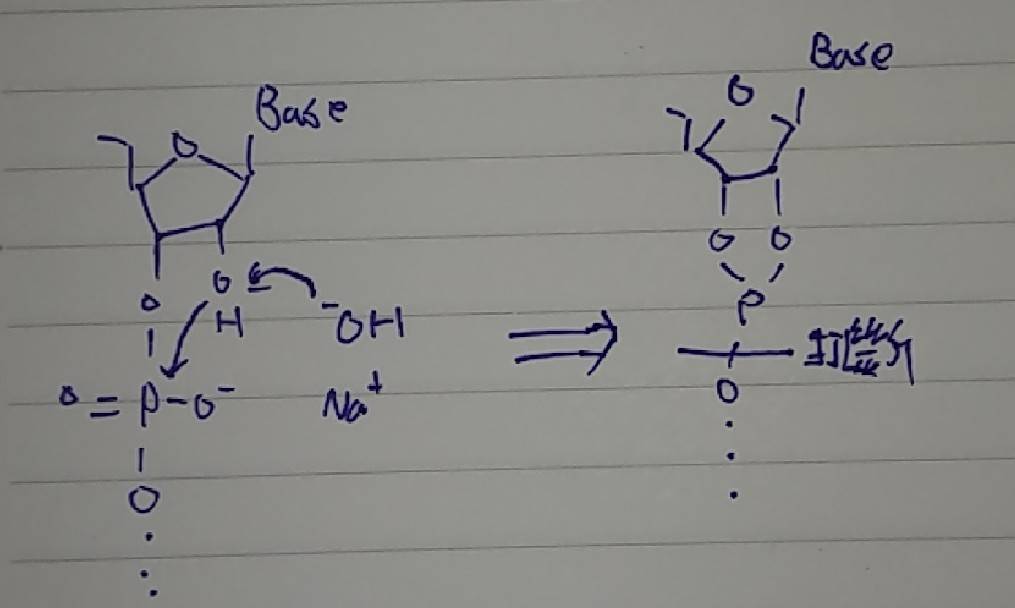 Base
O
O
O H ⁻OH
O=P-O⁻ Na⁺
O
Base
O
O O
P
打斷
O